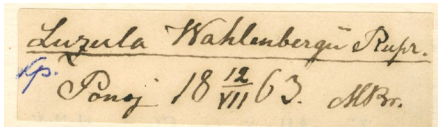 Luzula Wahlenbergii Rupr.
Kp. Ponoj 18 12/VII 63. MBr.